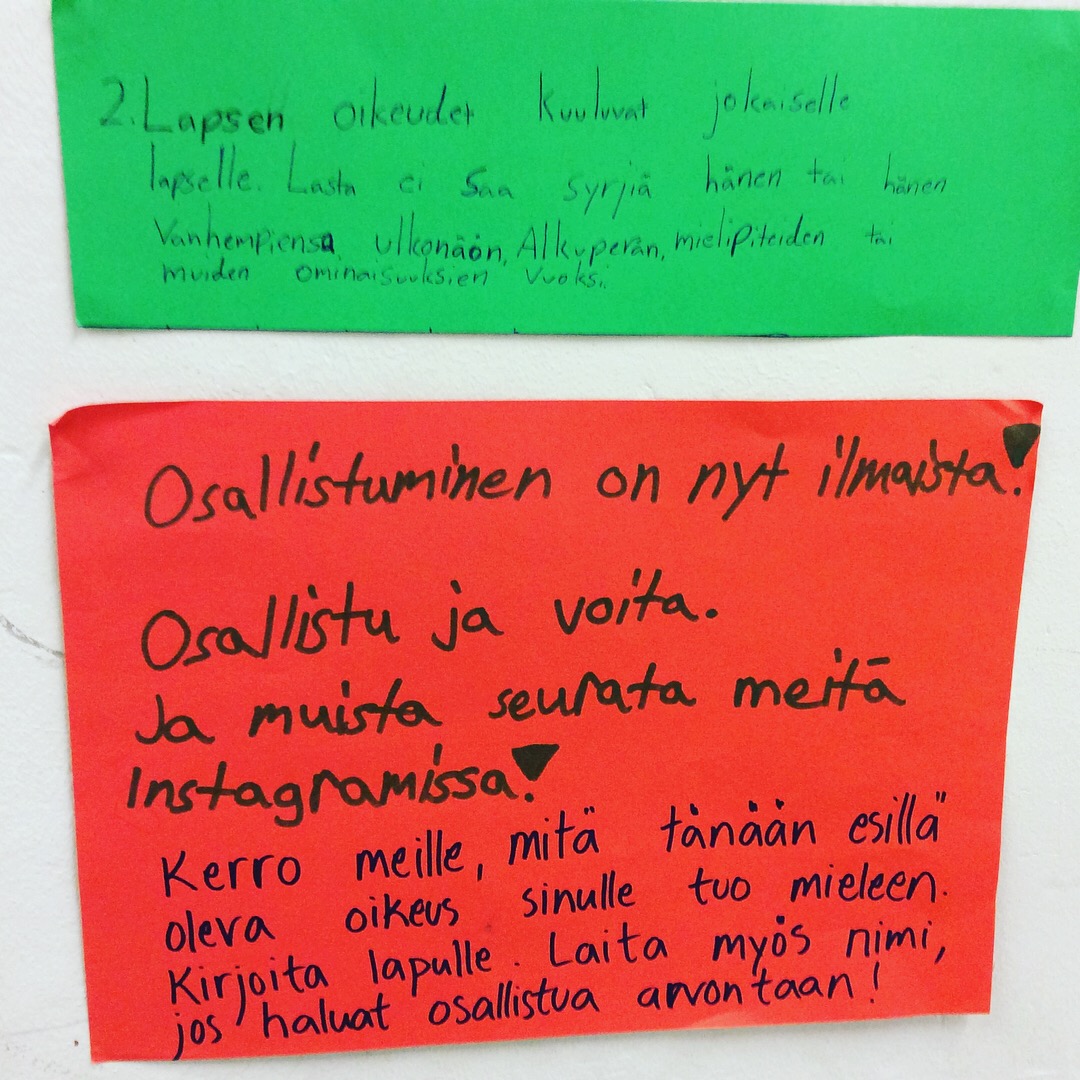 2. Lapsen oikeudet kuuluvat jokaiselle
lapselle. Lasta ei saa syrjiä hänen tai hänen
Vanhempiensa, ulkonäön, Alkuperän, mielipiteiden tai
muiden ominaisuuksien vuoksi.
Osallistuminen on nyt ilmaista!
Osallistu ja voita.
Ja muista seurata meitä
Instagramissa!
Kerro meille, mitä tänään esillä
oleva oikeus sinulle tuo mieleen.
Kirjoita lapulle. Laita myös nimi,
jos haluat osallistua arvontaan!